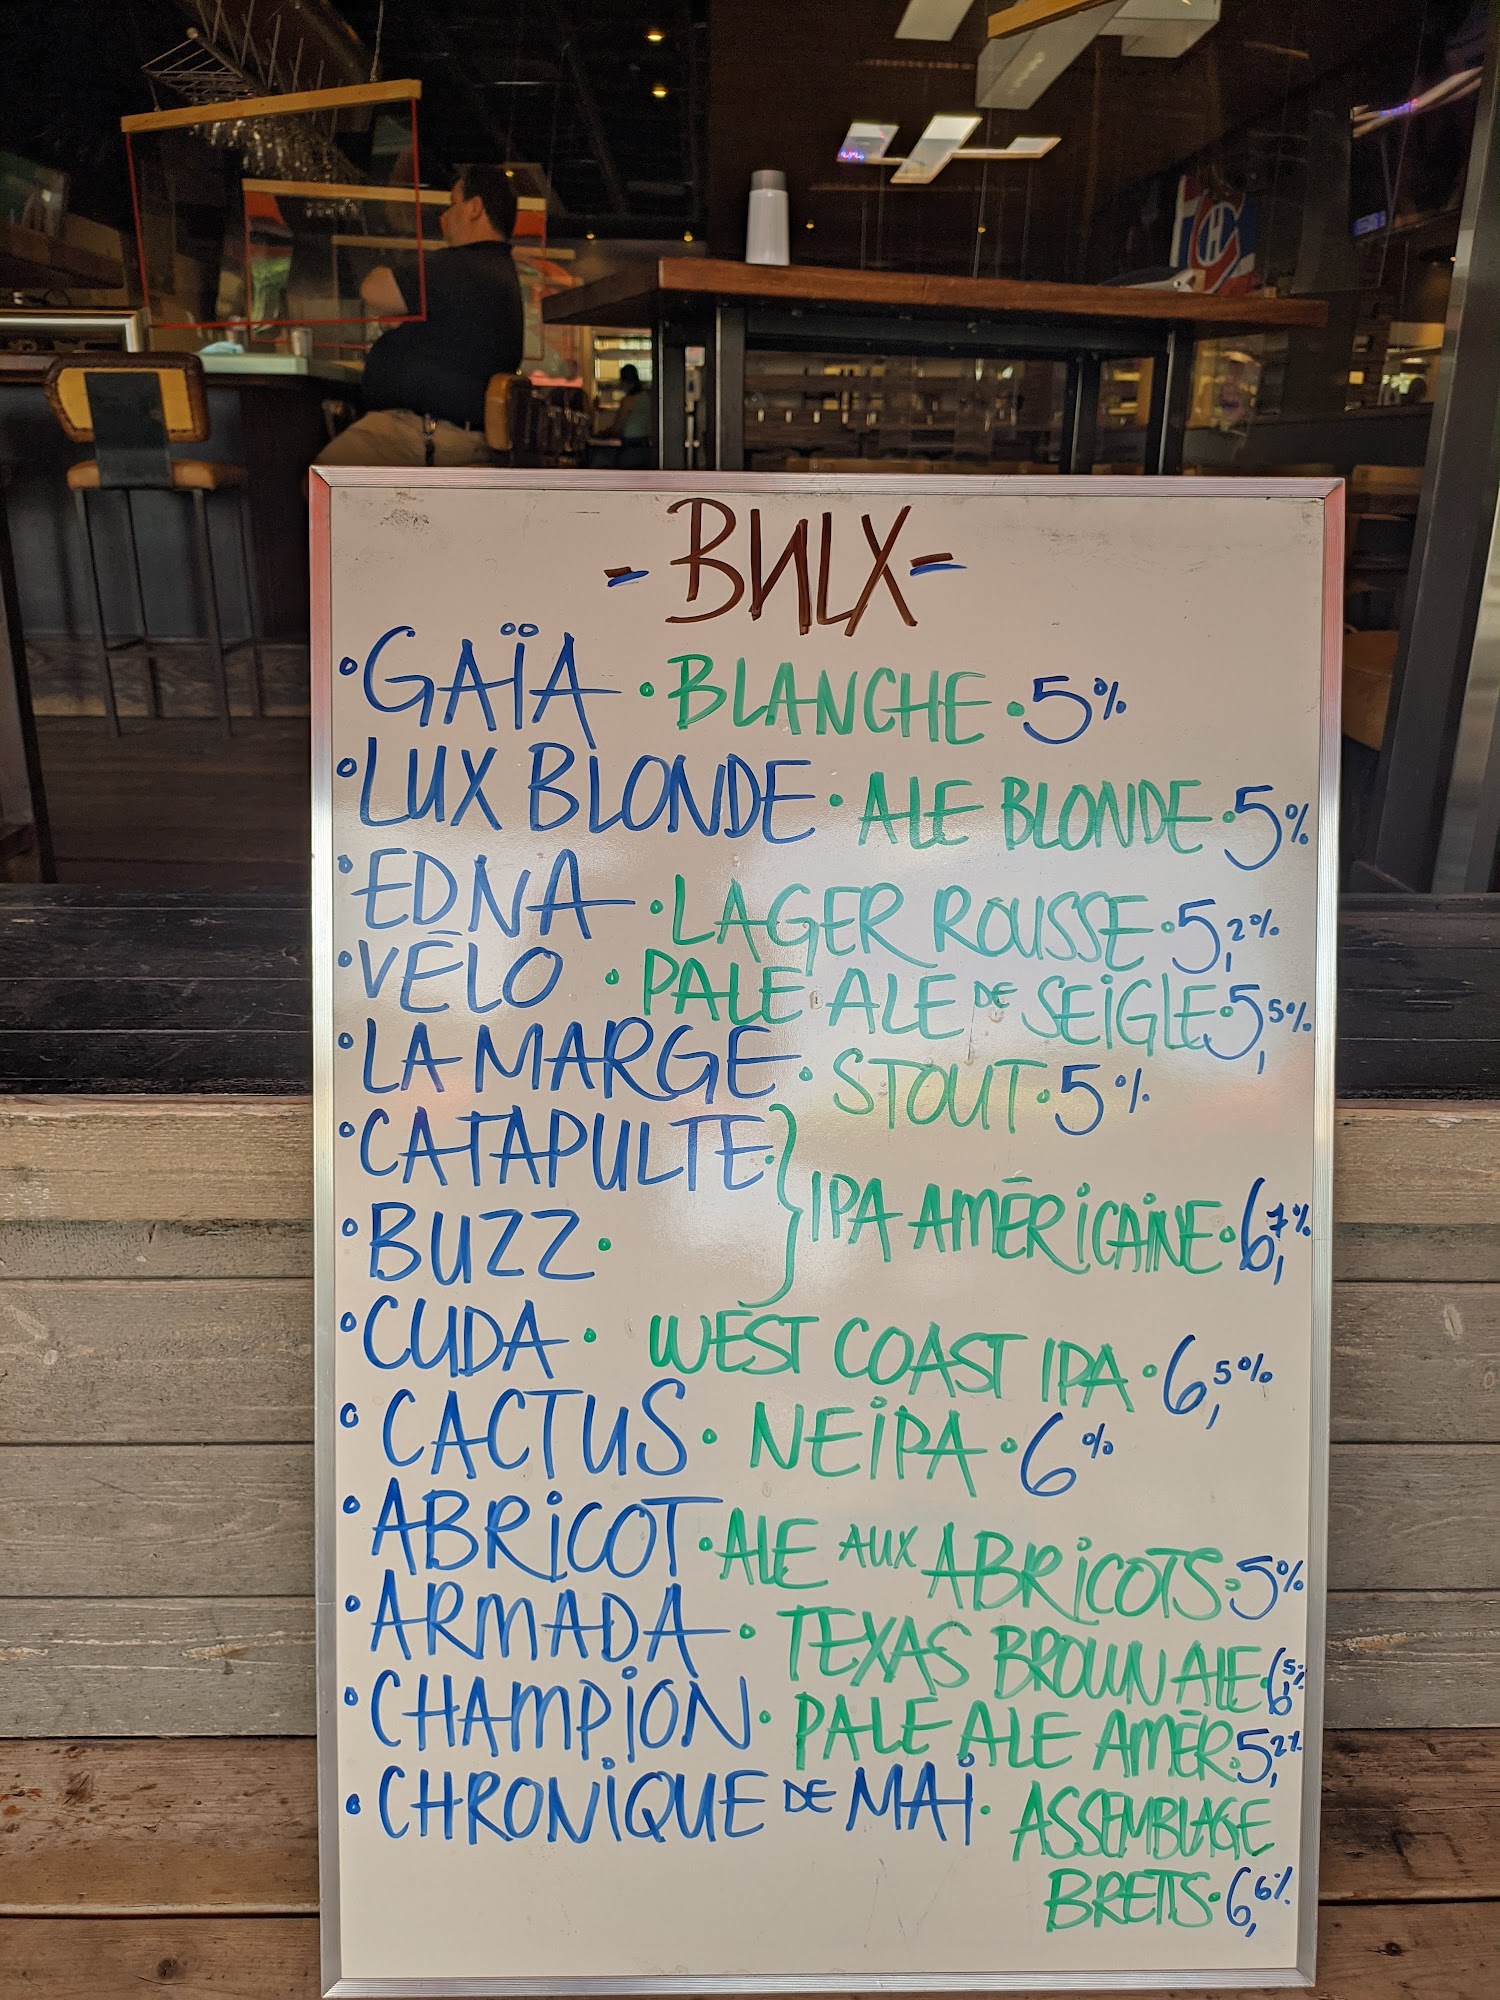 - BULX -
• GAÏA • BLANCHE • 5%
• LUX BLONDE • ALE BLONDE • 5%
• EDNA • LAGER ROUSSE • 5,2%
• VÉLO • PALE ALE DE SEIGLE • 5,5%
• LA MARGE • STOUT • 5%
• CATAPULTE •
• BUZZ •
} IPA AMÉRICAINE • 6,7%
• CUDA • WEST COAST IPA • 6,5%
• CACTUS • NEIPA • 6%
• ABRICOT • ALE AUX ABRICOTS • 5%
• ARMADA • TEXAS BROWN ALE 6,5%
• CHAMPION • PALE ALE AMÉR. 5,2%
• CHRONIQUE DE MAI • ASSEMBLAGE
BRETTS • 6,6%